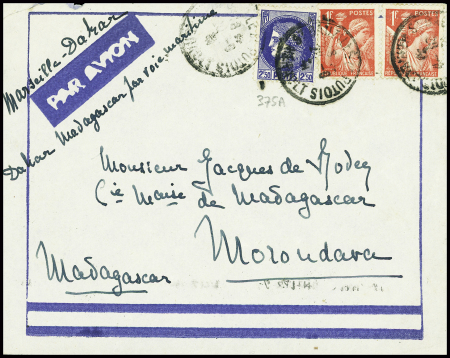 Marseille-Dakar
PAR AVION
Dakar Madagascar par voie maritime
2,50 POSTES 2,50
1F POSTES
REPUBLIQUE FRANÇAISE
1F POSTES
REPUBLIQUE FRANÇAISE
375A
Monsieur Jacques de
Cie Maise de Madagascar
Morondava
Madagascar